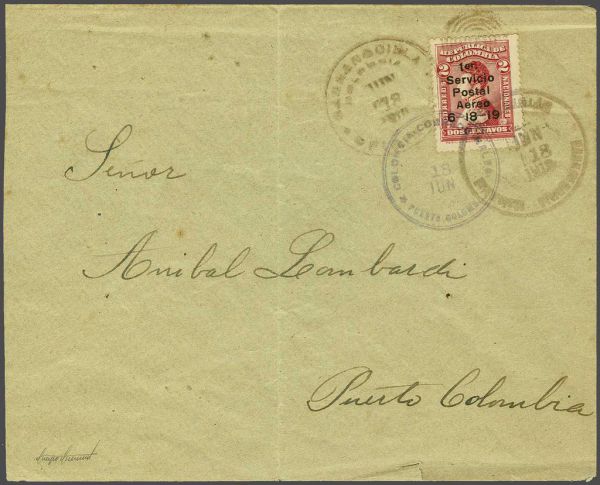 BARRANQUILLA
COLOMBIA
JUN
18
REPUBLICA DE
COLOMBIA
2 2
CORREOS NACIONALES
1er.
Servicio
Postal
Aereo
6-18-19
DOS CENTAVOS
COLOMBIA
18
JUN
PUERTO COLOMBIA
18
1919
Señor
Anibal Lombardi
Puerto Colombia